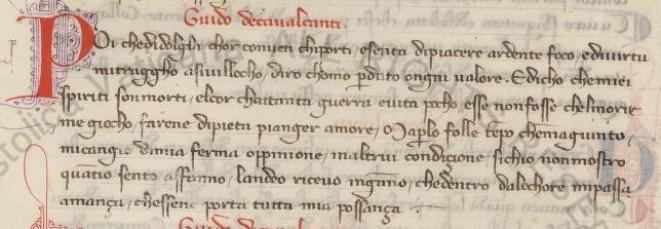 Guido decavalcanti.
Poi chedidolglia chor conven chiporti, esenta dipiacere ardente foco, edivirtu
mitraggho asivilloco, diro chomo perduto ongni valore. E dicho chemiei
spiriti sonmorti, elcor chattanta guerra evita pocho, esse nonfosse chelmorir
me giocho, farene dipieta pianger amore, Maplo folle tempo chemagiunto,
micangio dimia ferma oppinione, inaltrui condicione, sichio nonmostro
quanto sento affanno, landeo ricevo inganno, chedentro dalochore mipassa
amança, chessene porta tutta mia possança.
Guido